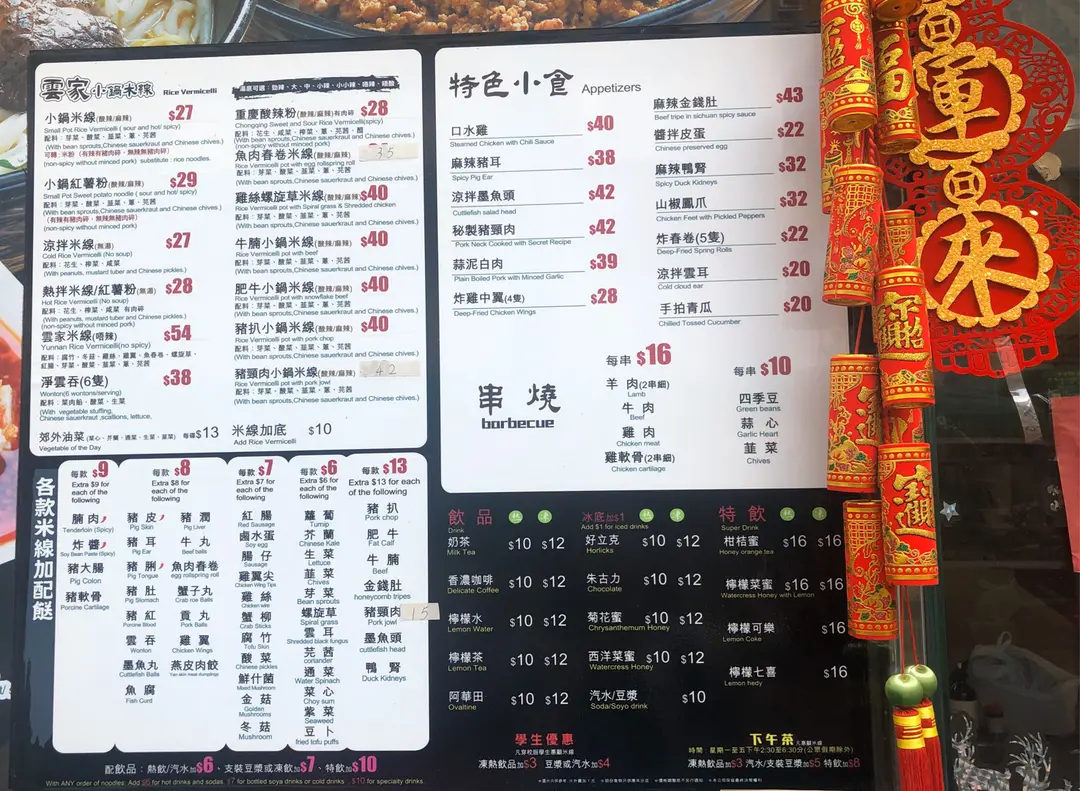 雲家小鍋米線 Rice Vermicelli
小鍋米線(酸辣/麻辣) $27
Small Pot Rice Vermicelli ( sour and hot/ spicy)
配料：芽菜、酸菜、韮菜、蔥、芫茜
(With bean sprouts,Chinese sauerkraut and Chinese chives.)
(nonspicy without minced pork) substitute : rice noodles.
小鍋紅薯粉(酸辣/麻辣) $29
Small Pot Sweet potato noodle ( sour and hot/ spicy)
配料：芽菜、酸菜、韮菜、蔥、芫茜
(With bean sprouts,Chinese sauerkraut and Chinese chives.)
(有辣有豬肉碎，無辣無豬肉碎)
(non-spicy without minced pork)
涼拌米線(無湯) $27
Cold Rice Vermicelli (No soup)
配料：花生、榨菜、咸菜
(With peanuts, mustard tuber and Chinese pickles.)
熱拌米線/紅薯粉(無湯) $28
Hot Rice Vermicelli (No soup)
配料：花生、榨菜、咸菜 有肉碎
(With peanuts, mustard tuber and Chinese pickles.)
(non-spicy without minced pork)
雲家米線(唔辣) $54
Yunnan Rice Vermicelli(no spicy)
配料：腐竹、冬菇、雞絲、雞翼、魚春卷、螺旋草、
紅腸、芽菜、酸菜、韮菜、蔥、芫茜
淨雲吞(6隻) $38
Wonton(6 wontons/serving)
配料：菜肉餡、酸菜、生菜
(With vegetable stuffing,
Chinese sauerkraut ,scallions, lettuce,
郊外油菜 (菜心、芥蘭、通菜、生菜、韮菜) 每碟$13
Vegetable of the Day
米線加底 $10
Add Rice Vermicelli
重慶酸辣粉(麻辣/酸辣)有肉碎 $28
Chongqing Sweet and Sour Rice Vermicelli(spicy)
配料：花生、咸菜、榨菜、蔥、芫茜、醋
(With bean sprouts,Chinese sauerkraut and Chinese chives.)
(non-spicy without minced pork)
魚肉春卷米線(酸辣/麻辣) 35
Rice Vermicelli pot with egg rollspring roll
配料：芽菜、酸菜、韮菜、蔥、芫茜
(With bean sprouts,Chinese sauerkraut and Chinese chives.)
雞絲螺旋草米線(酸辣/麻辣) $40
Rice Vermicelli pot with Spiral grass & Shredded chicken
配料：芽菜、酸菜、韮菜、蔥、芫茜
(With bean sprouts,Chinese sauerkraut and Chinese chives.)
牛腩小鍋米線(酸辣/麻辣) $40
Rice Vermicelli pot with beef
配料：芽菜、酸菜、韮菜、蔥、芫茜
(With bean sprouts,Chinese sauerkraut and Chinese chives.)
肥牛小鍋米線(酸辣/麻辣) $40
Rice Vermicelli pot with snowflake beef
配料：芽菜、酸菜、韮菜、蔥、芫茜
(With bean sprouts,Chinese sauerkraut and Chinese chives.)
豬扒小鍋米線(酸辣/麻辣) $40
Rice Vermicelli pot with pork chop
配料：芽菜、酸菜、韮菜、蔥、芫茜
(With bean sprouts,Chinese sauerkraut and Chinese chives.)
豬頸肉小鍋米線(酸辣/麻辣) 42
Rice Vermicelli pot with pork jowl
配料：芽菜、酸菜、韮菜、蔥、芫茜
(With bean sprouts,Chinese sauerkraut and Chinese chives.)
特色小食 Appetizers
口水雞 $40
Steamed Chicken with Chili Sauce
麻辣豬耳 $38
Spicy Pig Ear
涼拌墨魚頭 $42
Cuttlefish salad head
秘製豬頸肉 $42
Pork Neck Cooked with Secret Recipe
蒜泥白肉 $39
Plain Boiled Pork with Minced Garlic
炸雞中翼(4隻) $28
Deep-Fried Chicken Wings
麻辣金錢肚 $43
Beef tripe in sichuan spicy sauce
醬拌皮蛋 $22
Chinese preserved egg
麻辣鴨腎 $32
Spicy Duck Kidneys
山椒鳳爪 $32
Chicken Feet with Pickled Peppers
炸春卷(5隻) $22
Deep-Fried Spring Rolls
涼拌雲耳 $20
Cold cloud ear
手拍青瓜 $20
Chilled Tossed Cucumber
串燒
barbecue
每串 $16
羊肉(2串細)
Lamb
牛肉
Beef
雞肉
Chicken meat
雞軟骨(2串細)
Chicken cartilage
每串 $10
四季豆
Green beans
蒜心
Garlic Heart
韮菜
Chives
各款米線加配餸
每款 $9
Extra $9 for
each of the
following
腩肉
Tenderloin (Spicy)
炸醬
Soy Bean Paste (Spicy)
豬大腸
Pig Colon
豬軟骨
Porcine Cartilage
每款 $8
Extra $8 for
each of the
following
豬皮
Pig Skin
豬耳
Pig Ear
豬脷
Pig Tongue
豬肚
Pig Stomach
豬紅
Porcine Blood
雲吞
Wonton
墨魚丸
Cuttlefish Balls
魚腐
Fish Curd
豬膶
Pig Liver
牛丸
Beef balls
魚肉春卷
egg rollspring roll
蟹子丸
Crab roe Balls
貢丸
Pork Balls
雞翼
Chicken Wings
燕皮肉餃
Yan skin meat dumplings
每款 $7
Extra $7 for
each of the
following
紅腸
Red Sausage
鹵水蛋
Soy egg
腸仔
Sausage
雞翼尖
Chicken Wing Tips
雞絲
蟹柳
Crab Sticks
腐竹
Tofu Skin
酸菜
Chinese pickles
鮮什菌
Mixed Mushroom
金菇
Golden
Mushrooms
冬菇
Mushroom
每款 $6
Extra $6 for
each of the
following
蘿蔔
Turnip
芥蘭
Chinese Kale
生菜
Lettuce
韮菜
Chives
芽菜
Bean sprouts
螺旋草
Spiral grass
雲耳
Shredded black fungus
芫茜
coriander
通菜
Water Spinach
菜心
Choy sum
紫菜
Seaweed
豆卜
fried tofu puffs
每款 $13
Extra $13 for each
of the following
豬扒
Pork chop
肥牛
Fat Calf
牛腩
Beef
金錢肚
honeycomb tripes
豬頸肉 15
Pork jowl
墨魚頭
cuttlefish head
鴨腎
Duck Kidneys
配飲品：熱飲/汽水加$6、支裝豆漿或凍飲加$7、特飲加$10
With ANY order of noodles: Add $6 for hot drinks and sodas. $7 for bottled soya drinks or cold drinks . $10 for specialty drinks.
飲品 熱 凍
Drink
奶茶 $10 $12
Milk Tea
香濃咖啡 $10 $12
Delicate Coffee
檸檬水 $10 $12
Lemon Water
檸檬茶 $10 $12
Lemon Tea
阿華田 $10 $12
Ovaltine
冰底加$1 熱 凍
Add $1 for iced drinks
好立克 $10 $12
Horlicks
朱古力 $10 $12
Chocolate
菊花蜜 $10 $12
Chrysanthemum Honey
西洋菜蜜 $10 $12
Watercress Honey
汽水/豆漿 $10
Soda/Soyo drink
特飲 熱 凍
Super Drink
柑桔蜜 $16 $16
Honey orange tea
檸檬菜蜜 $16 $16
Watercress Honey with Lemon
檸檬可樂 $16
Lemon Coke
檸檬七喜 $16
Lemon hedy
學生優惠
凡穿校服學生惠顧米線
凍熱飲品加$3 豆漿或汽水加$4
下午茶 凡惠顧米線
時間：星期一至五下午2:30至6:30(公眾假期除外)
凍熱飲品加$3 汽水/支裝豆漿加$5 特飲加$8
福